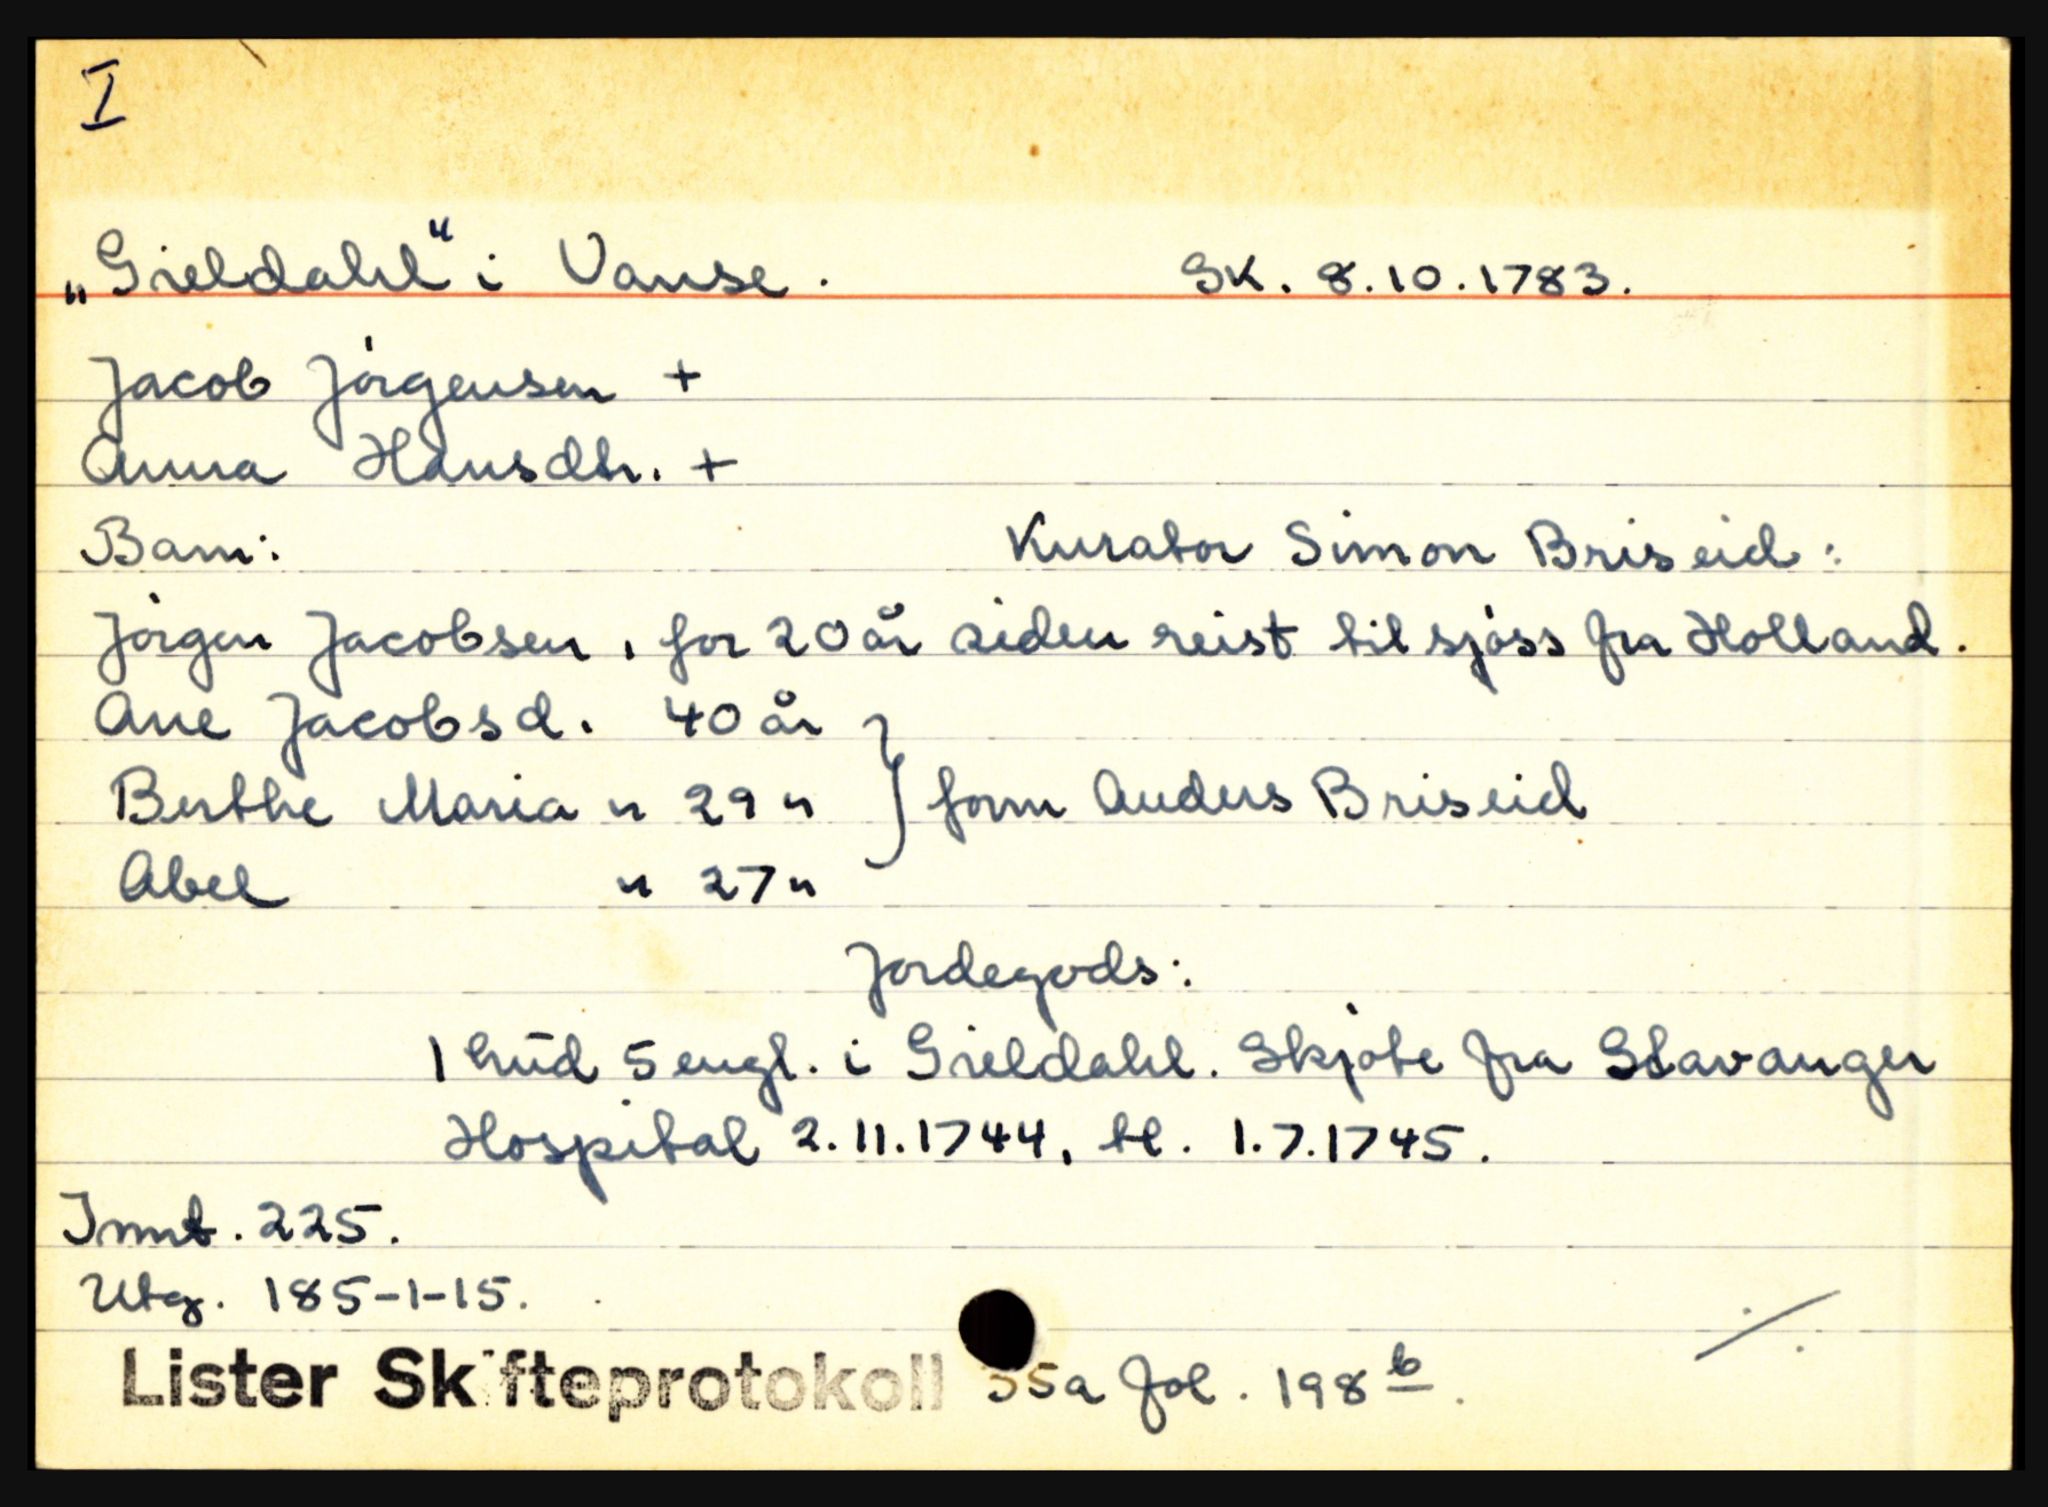 I
„Gieldahl" i Vanse. SK. 8.10.1783.
Jacob Jörgensen +
Anna Hansdtr. +
Barn: Kurator Simon Briseid:
Jörgen Jacobsen, for 20 år siden reist til sjöss fra Holland.
Ane Jacobsd. 40 år
Berthe Maria " 29 " } form Anders Briseid
Abel " 27 "
Jordegods:
1 hud 5 engl. i Gieldahl. Skjöte fra Stavanger
Hospital 2.11.1744, tl. 1.7.1745.
Innt. 225.
Utg. 185-1-15.
Lister Skifteprotokoll 35a fol. 198 b.